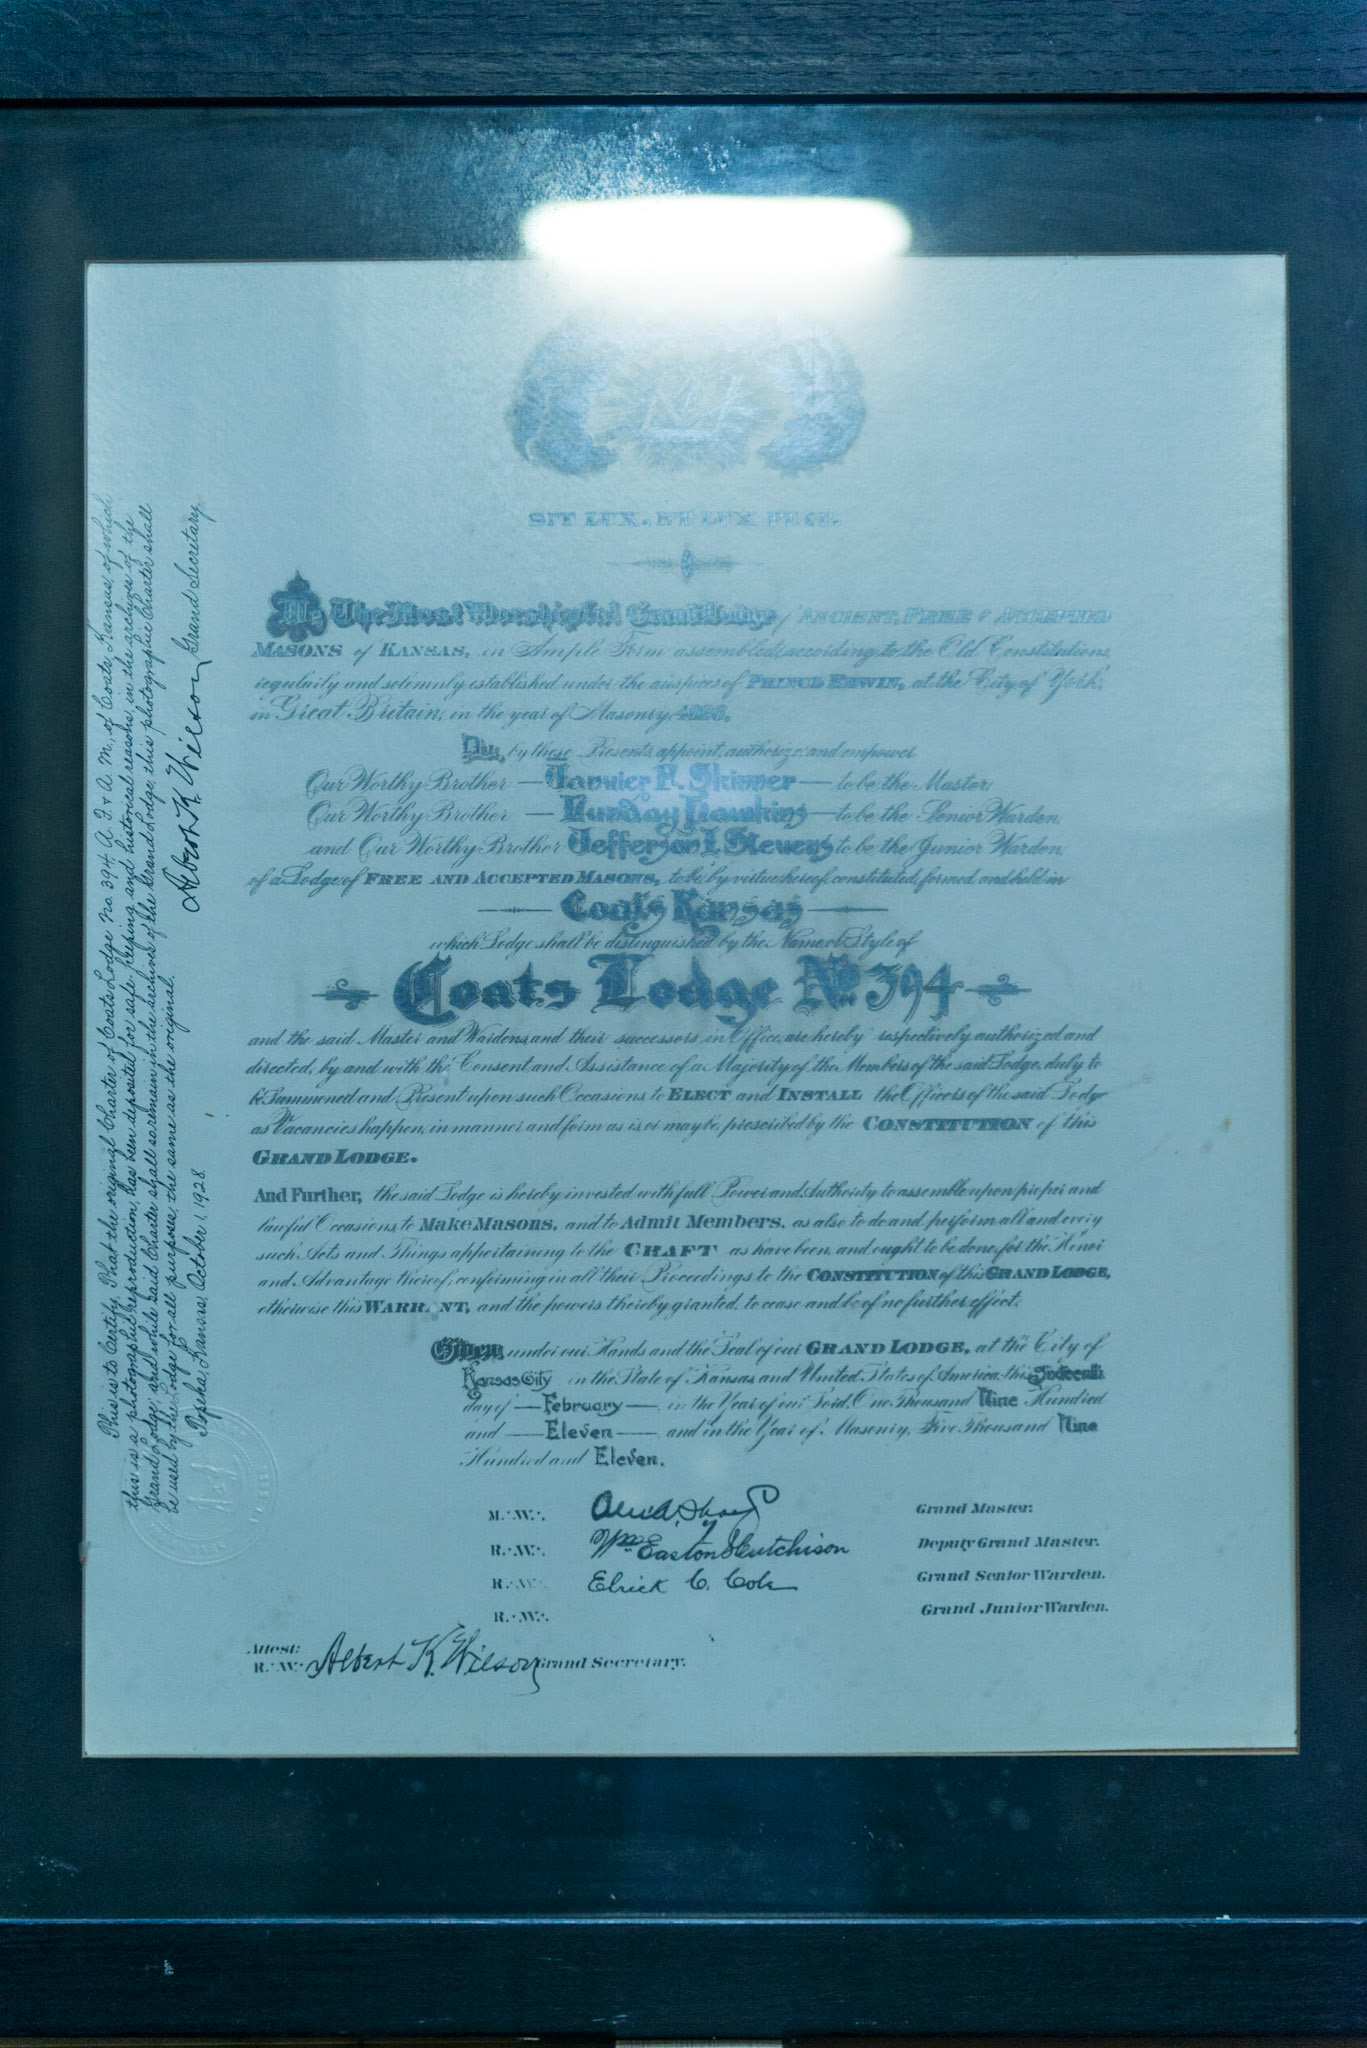 SIT LUX, ET LUX FUIT.
We The Most Worshipful Grand Lodge, ANCIENT, FREE & ACCEPTED
MASONS of KANSAS, in Ample Form assembled, according to the Old Constitutions,
regularly and solemnly established under the auspices of PRINCE EDWIN, at the City of York,
in Great Britain, in the year of Masonry, 4926,
Do, by these Presents, appoint, authorize and empower
Our Worthy Brother — Skinner — to be the Master,
Our Worthy Brother — Hawkins — to be the Senior Warden,
and Our Worthy Brother Jefferson I. Stevens to be the Junior Warden,
of a Lodge of FREE AND ACCEPTED MASONS, to be, by virtue hereof, constituted, formed, and held in
Coats Kansas
which Lodge shall be distinguished by the Name or Style of
Coats Lodge No. 394
and the said Master and Wardens, and their successors in Office, are hereby respectively authorized and
directed, by and with the Consent and Assistance of a Majority of the Members of the said Lodge, duly to
be Summoned and Present upon such Occasions, to ELECT and INSTALL the Officers of the said Lodge
as Vacancies happen, in manner and form as is, or may be, prescribed by the CONSTITUTION of this
GRAND LODGE.
And Further, the said Lodge is hereby invested with full Power and Authority to assemble upon proper and
lawful Occasions, to Make Masons, and to Admit Members, as also to do and perform all and every
such Acts and Things appertaining to the CRAFT as have been, and ought to be done, for the Honor
and Advantage thereof, conforming in all their Proceedings to the CONSTITUTION of this GRAND LODGE,
otherwise this WARRANT, and the powers thereby granted, to cease and be of no further effect.
Given under our Hands and the Seal of our GRAND LODGE, at the City of
Kansas City in the State of Kansas and United States of America, this Sixteenth
day of — February —, in the Year of our Lord, One Thousand Nine Hundred
and — Eleven —, and in the Year of Masonry, Five Thousand Nine
Hundred and Eleven.
M∴W∴ Grand Master.
R∴W∴ Wm Easton Hutchison Deputy Grand Master.
R∴W∴ Elrick C. Cole Grand Senior Warden.
R∴W∴ Grand Junior Warden.
Attest:
R∴W∴ Albert K. Wilson Grand Secretary.
This is to Certify, That the original Charter of Coats Lodge No. 394 A. F. & A. M., of Coats, Kansas, of which
this is a photographic reproduction, has been deposited for safe-keeping and historical reasons, in the archives of the
Grand Lodge; and while said Charter shall so remain in the archives of the Grand Lodge, this photographic Charter shall
be used by the Lodge for all purposes, the same as the original.
Topeka, Kansas, October 1, 1928.
Albert K. Wilson Grand Secretary.